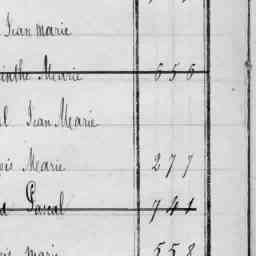 Jean marie
inthe Marie 656
l Jean Marie
is Marie 277
Pascal 741
is marie 558